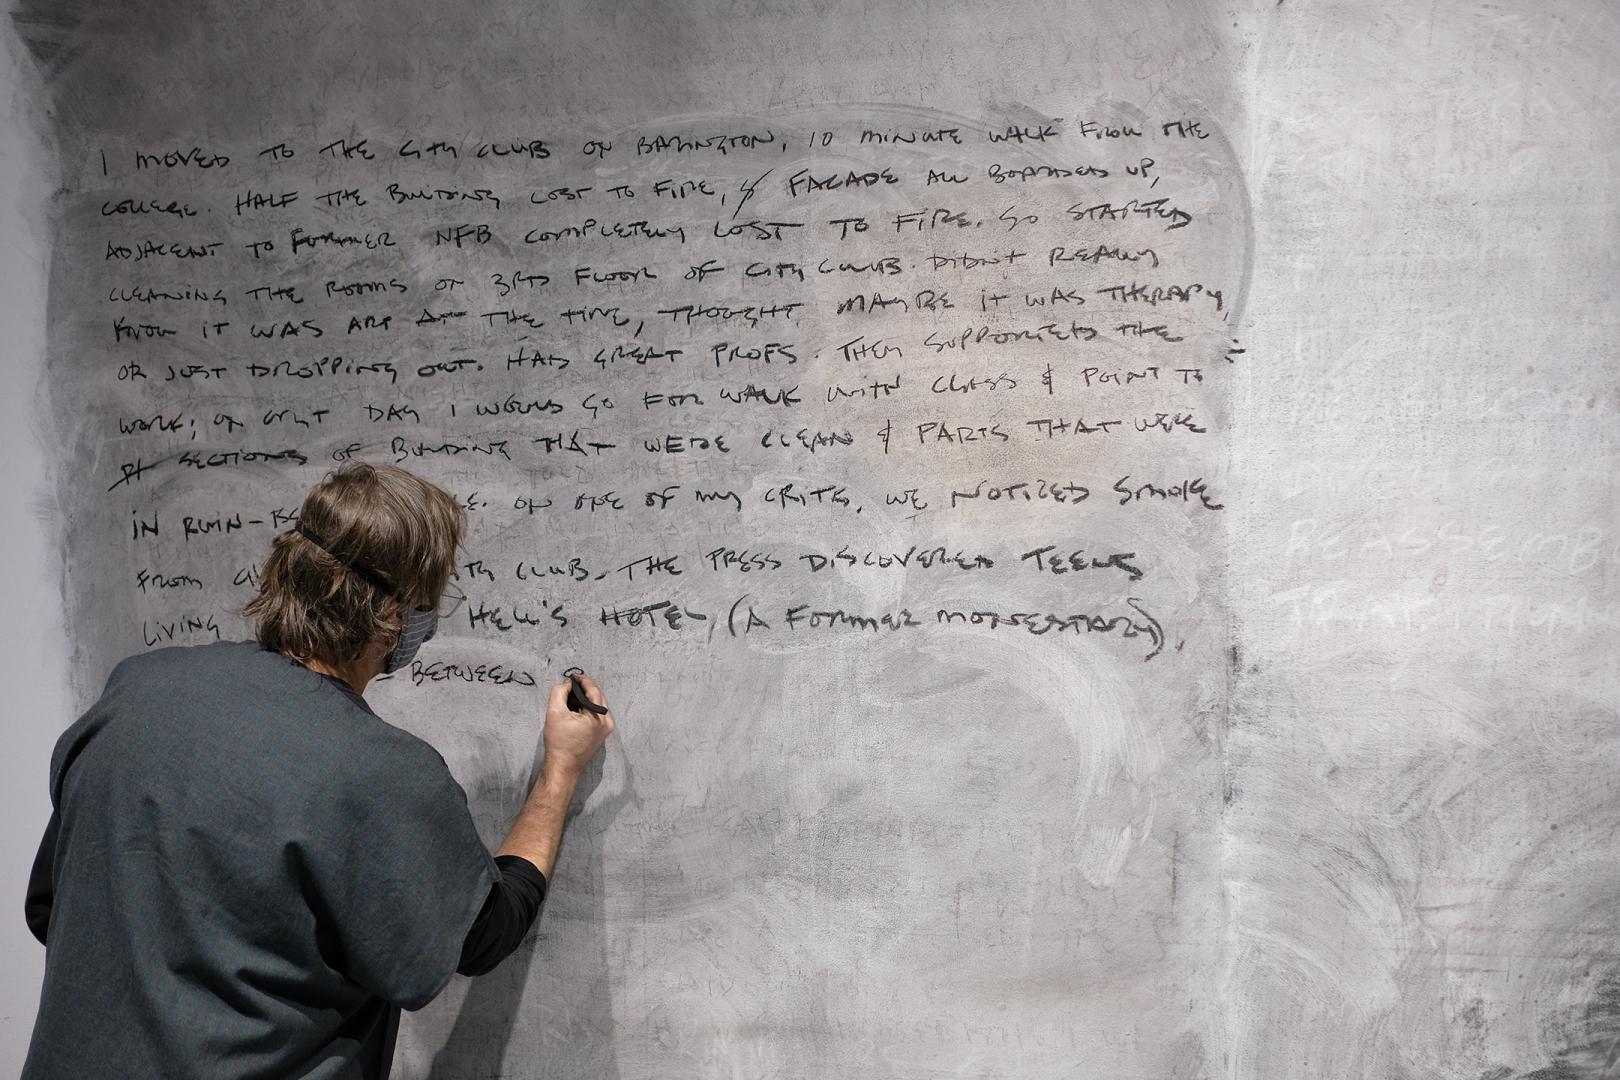 I MOVED TO THE CITY CLUB ON BARRINGTON, 10 MINUTE WALK FROM THE
COLLEGE. HALF THE BUILDING LOST TO FIRE, & FACADE ALL BOARDED UP,
ADJACENT TO FORMER NFB COMPLETELY LOST TO FIRE. SO STARTED
CLEANING THE ROOMS ON 3RD FLOOR OF CITY CLUB. DIDN'T REALLY
KNOW IT WAS ART AT THE TIME, THOUGHT MAYBE IT WAS THERAPY,
OR JUST DROPPING OUT. HAD GREAT PROFS. THEY SUPPORTED THE
WORK; ON CRIT DAY I WOULD GO FOR WALK WITH CLASS & POINT TO
SECTIONS OF BUILDING THAT WERE CLEAN & PARTS THAT WERE
IN RUIN - ON ONE OF MY CRITS, WE NOTICED SMOKE
FROM CLUB. THE PRESS DISCOVERED TEENS
LIVING HELL'S HOTEL, (A FORMER MONESTARY),
BETWEEN
REASSEMB